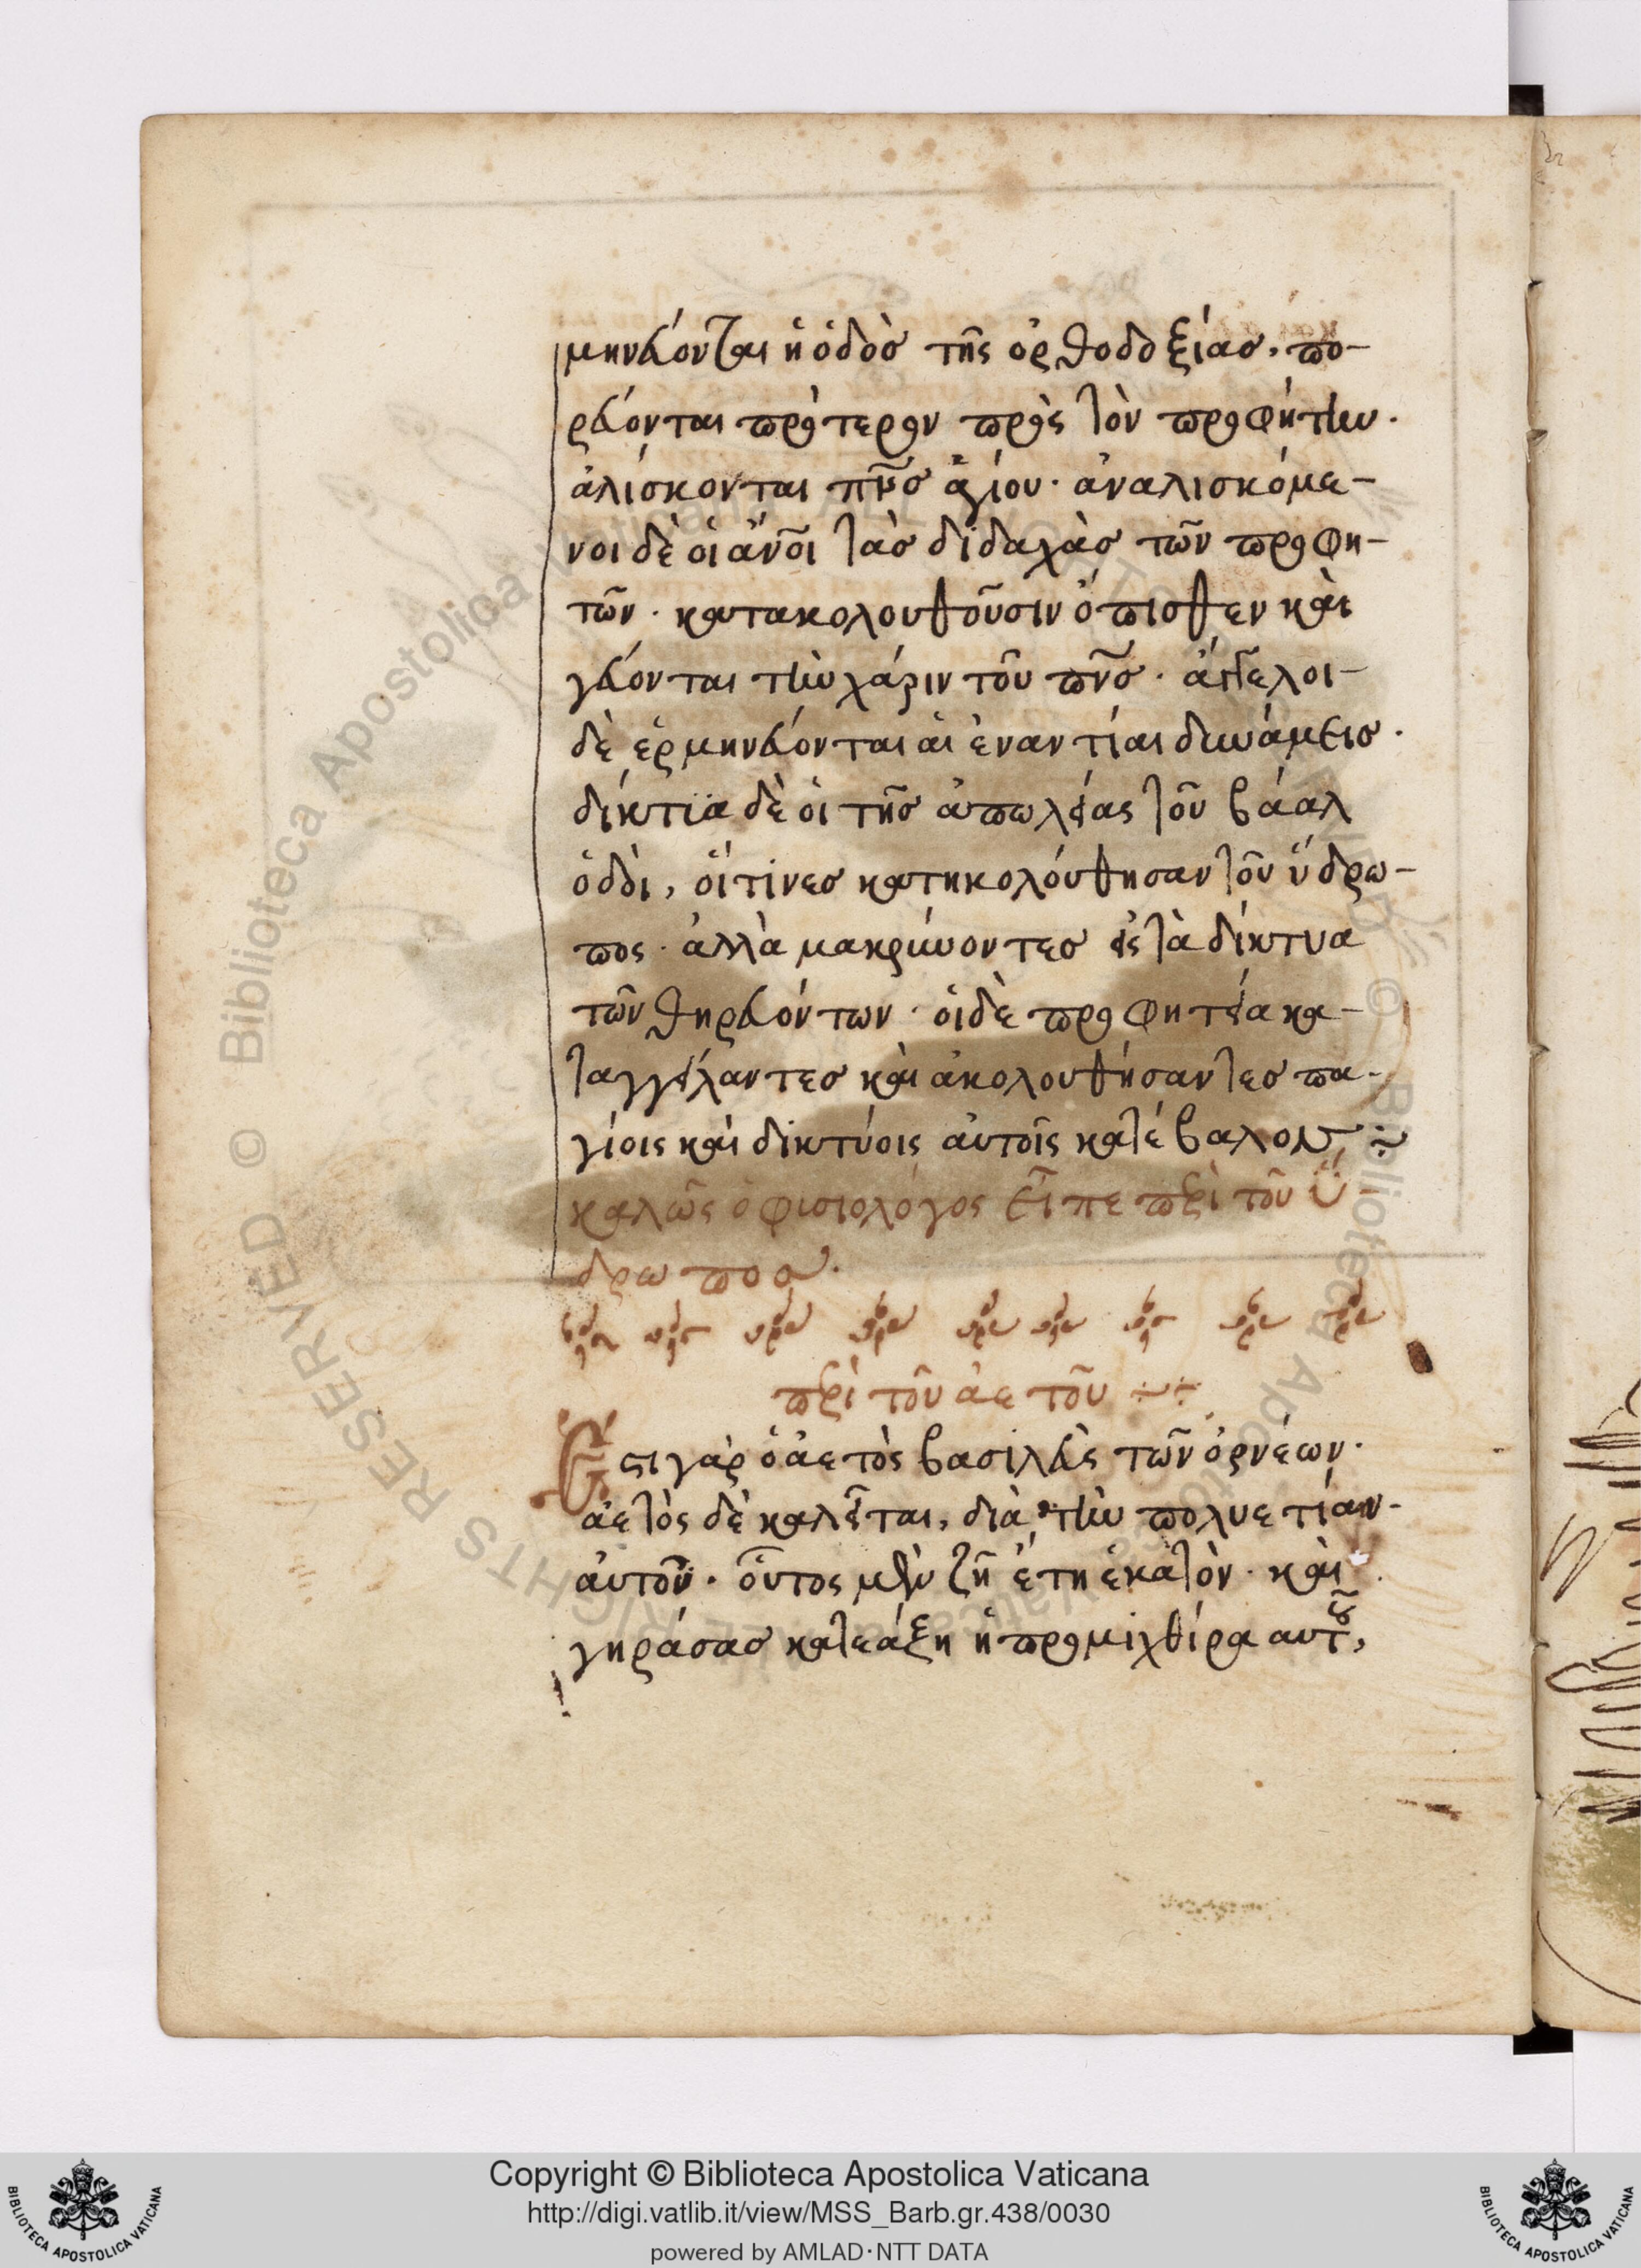 μηνεύονται ἡ ὁδὸσ τῆς ὀρθοδοξίασ, πο-
ρεύονται πρότερον πρὸς τὸν προφήτην.
ἁλίσκονται πν̅σ ἁγίου· ἀναλισκόμε-
νοι δὲ οἱ ἄν̅οι τὰσ διδαχὰσ τῶν προφη-
τῶν. κατακολουθοῦσιν ὄπισθεν καὶ
γεύονται τὴν χάριν τοῦ πν̅σ. ἄγγελοι-
δὲ ἑρμηνεύονται αἱ ἐναντίαι δυνάμεισ.
δίκτϊα δὲ οἱ τῆσ ἀπωλείας τοῦ βάαλ
ὁδδὶ, οἵτινεσ κατηκολόυθησαν τοῦ ὕδρω-
πος. ἀλλὰ μακρύνοντεσ εἰς τὰ δίκτυα
τῶν θηρευόντων· οἱ δὲ προφητεία κα-
ταγγείλαντεσ καὶ ἀκολουθήσαντεσ πα-
γίοις καὶ δικτύοις ἀυτοῖς κατέβαλον
καλῶς ὁ φισιολόγος εἶπε περὶ τοῦ ὕ-
δρωποσ.
περὶ τοῦ ἀετοῦ
Ἔστι γὰρ ὁ ἀετὸς βασιλεὺς τῶν ὀρνέων.
ἀετὸς δὲ καλεῖται, διὰ τὴν πολυετίαν-
ἀυτοῦ. οὗτος μὲν ζῆ ἔτη ἑκατὸν. καὶ
γηράσασ κατεάξη ἡ προμιχθίρα αυτοῦ,
Copyright © Biblioteca Apostolica Vaticana
http://digi.vatlib.it/view/MSS_Barb.gr.438/0030
powered by AMLAD·NTT DATA
BIBLIOTECA APOSTOLICA VATICANA
BIBLIOTECA APOSTOLICA VATICANA